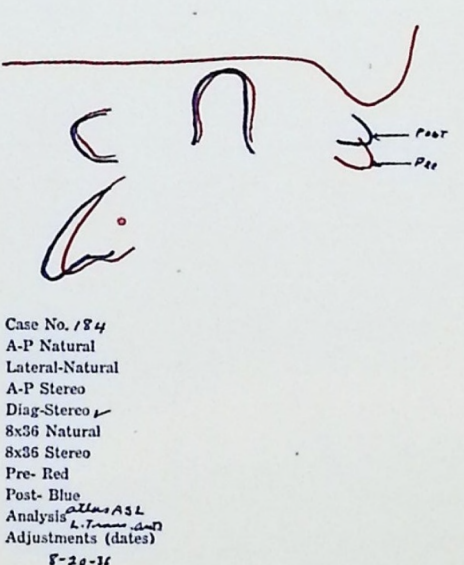 Post
Pre
Case No. 184
A-P Natural
Lateral-Natural
A-P Stereo
Diag-Stereo ✓
8x36 Natural
8x36 Stereo
Pre- Red
Post- Blue
Analysis atlas ASL
L. Trans. ant
Adjustments (dates)
8-20-36